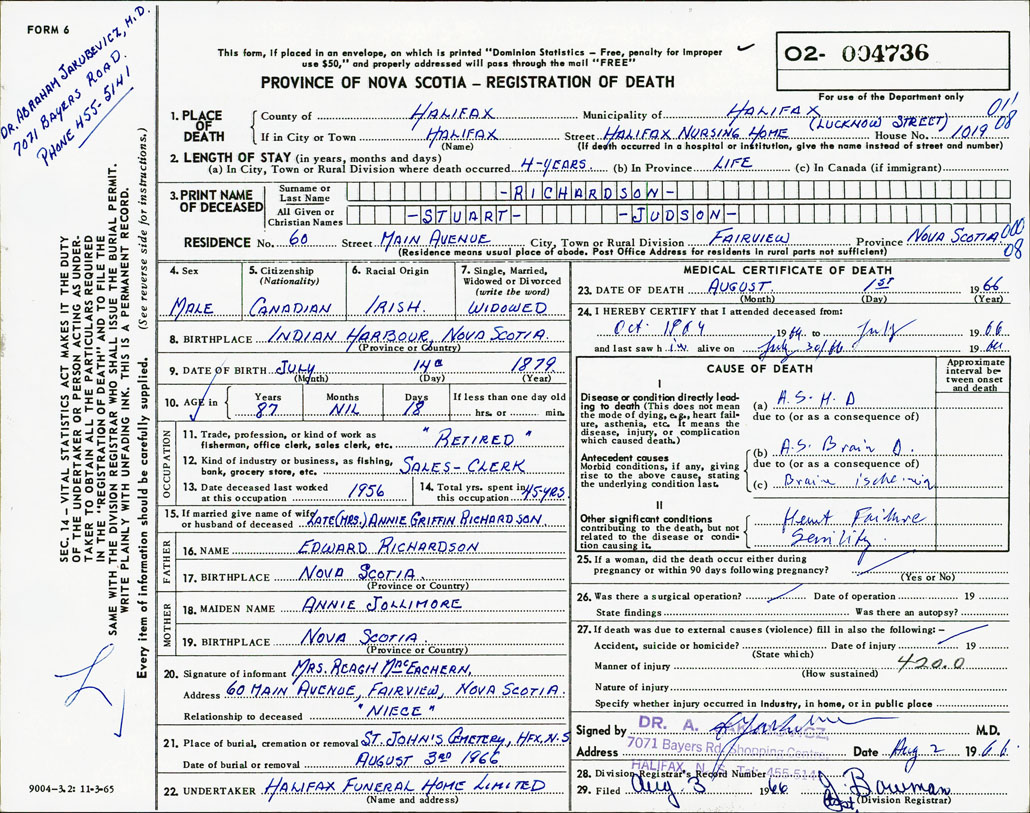 FORM 6
DR. ABRAHAM JAKUBEVICZ, M.D.
7071 BAYERS ROAD.
PHONE 455-5141
This form, if placed in an envelope, on which is printed "Dominion Statistics – Free, penalty for improper
use $50," and properly addressed will pass through the mail "FREE"
PROVINCE OF NOVA SCOTIA – REGISTRATION OF DEATH
02- 004736
For use of the Department only
011
08
1. PLACE OF DEATH
County of HALIFAX Municipality of HALIFAX
(LUCKNOW STREET)
If in City or Town HALIFAX Street HALIFAX NURSING HOME House No. 1019
(Name) (If death occurred in a hospital or institution, give the name instead of street and number)
2. LENGTH OF STAY (in years, months and days)
(a) In City, Town or Rural Division where death occurred 4-YEARS (b) In Province LIFE (c) In Canada (if immigrant)
3. PRINT NAME OF DECEASED
Surname or Last Name -RICHARDSON-
All Given or Christian Names -STUART- -JUDSON-
RESIDENCE No. 60 Street MAIN AVENUE City, Town or Rural Division FAIRVIEW Province NOVA SCOTIA
(Residence means usual place of abode. Post Office Address for residents in rural parts not sufficient)
000
08
4. Sex
MALE
5. Citizenship
(Nationality)
CANADIAN
6. Racial Origin
IRISH.
7. Single, Married,
Widowed or Divorced
(write the word)
WIDOWED
8. BIRTHPLACE INDIAN HARBOUR, NOVA SCOTIA.
(Province or Country)
9. DATE OF BIRTH JULY 14th 1879
(Month) (Day) (Year)
10. AGE in Years Months Days If less than one day old
87 NIL 18 hrs. or min.
OCCUPATION
11. Trade, profession, or kind of work as
fisherman, office clerk, sales clerk, etc. "RETIRED"
12. Kind of industry or business, as fishing,
bank, grocery store, etc. SALES-CLERK
13. Date deceased last worked
at this occupation 1956
14. Total yrs. spent in
this occupation 45-YRS.
15. If married give name of wife
or husband of deceased LATE (MRS.) ANNIE GRIFFIN RICHARDSON
FATHER
16. NAME EDWARD RICHARDSON
17. BIRTHPLACE NOVA SCOTIA.
(Province or Country)
MOTHER
18. MAIDEN NAME ANNIE JOLLIMORE
19. BIRTHPLACE NOVA SCOTIA.
(Province or Country)
20. Signature of informant MRS. REAGH MACEACHERN,
Address 60 MAIN AVENUE, FAIRVIEW, NOVA SCOTIA.
Relationship to deceased "NIECE"
21. Place of burial, cremation or removal ST. JOHN'S CEMETERY, HFX, N.S
Date of burial or removal AUGUST 3RD 1966
22. UNDERTAKER HALIFAX FUNERAL HOME LIMITED
(Name and address)
MEDICAL CERTIFICATE OF DEATH
23. DATE OF DEATH AUGUST 1ST 1966
(Month) (Day) (Year)
24. I HEREBY CERTIFY that I attended deceased from:
Oct. 1964 1964 to July 1966
and last saw him alive on July 30/66 19
CAUSE OF DEATH
Approximate
interval be-
tween onset
and death
I
Disease or condition directly lead-
ing to death (This does not mean
the mode of dying, e.g., heart fail-
ure, asthenia, etc. It means the
disease, injury, or complication
which caused death.)
(a) A.S.H.D
due to (or as a consequence of)
Antecedent causes
Morbid conditions, if any, giving
rise to the above cause, stating
the underlying condition last.
(b) A.S. Brain D.
due to (or as a consequence of)
(c) Brain ischemia
II
Other significant conditions
contributing to the death, but not
related to the disease or condi-
tion causing it.
Heart Failure
Senility.
25. If a woman, did the death occur either during
pregnancy or within 90 days following pregnancy?
(Yes or No)
26. Was there a surgical operation? Date of operation 19
State findings Was there an autopsy?
27. If death was due to external causes (violence) fill in also the following: –
Accident, suicide or homicide? Date of injury 19
(State which)
Manner of injury 420.0
(How sustained)
Nature of injury
Specify whether injury occurred in Industry, in home, or in public place
Signed by M.D.
DR. A.
Address Date Aug 2 1966.
7071 Bayers Rd. Shopping Centre
HALIFAX, N. S. Tel: 455-514
28. Division Registrar's Record Number
29. Filed Aug 3 1966 J. Bowman
Asst. (Division Registrar)
SEC. 14 – VITAL STATISTICS ACT MAKES IT THE DUTY
OF THE UNDERTAKER OR PERSON ACTING AS UNDER-
TAKER TO OBTAIN ALL THE PARTICULARS REQUIRED
IN THE "REGISTRATION OF DEATH" AND TO FILE THE
SAME WITH THE DIVISION REGISTRAR WHO SHALL ISSUE THE BURIAL PERMIT.
WRITE PLAINLY WITH UNFADING INK. THIS IS A PERMANENT RECORD.
Every item of information should be carefully supplied. (See reverse side for instructions.)
9004–3.2: 11-3-65